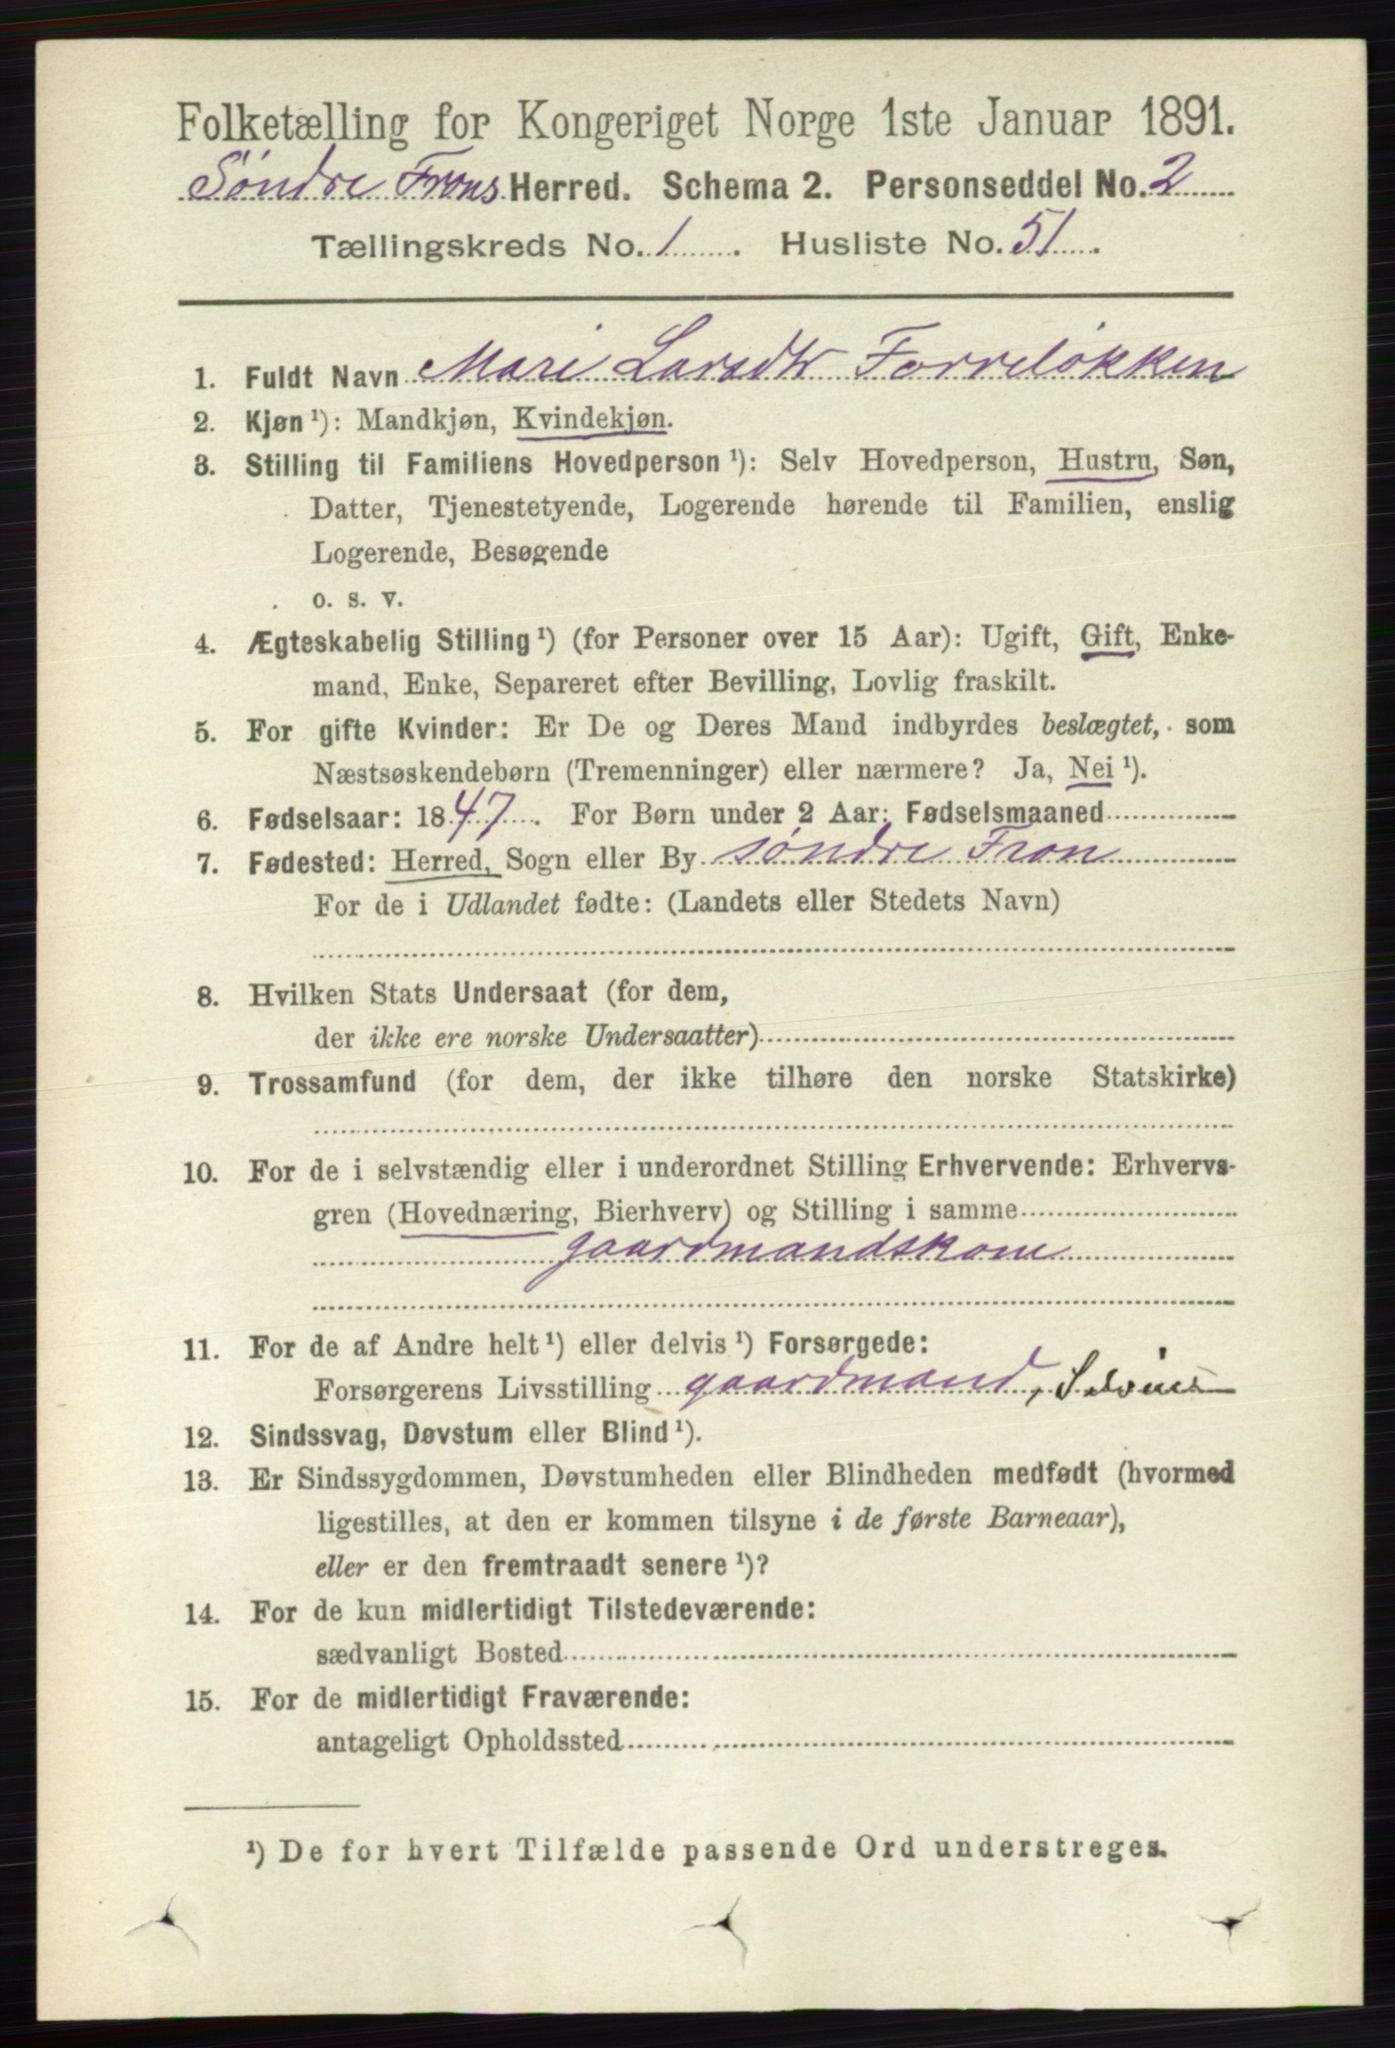 Folketælling for Kongeriget Norge 1ste Januar 1891.
Søndre Frons Herred. Schema 2. Personseddel No. 2
Tællingskreds No. 1. Husliste No. 51.
1. Fuldt Navn Mari Larsdtr Forreløkken
2. Kjøn ¹): Mandkjøn, Kvindekjøn.
3. Stilling til Familiens Hovedperson ¹): Selv Hovedperson, Hustru, Søn,
Datter, Tjenestetyende, Logerende hørende til Familien, enslig
Logerende, Besøgende
o. s. v.
4. Ægteskabelig Stilling ¹) (for Personer over 15 Aar): Ugift, Gift, Enke-
mand, Enke, Separeret efter Bevilling, Lovlig fraskilt.
5. For gifte Kvinder: Er De og Deres Mand indbyrdes beslægtet, som
Næstsøskendebørn (Tremenninger) eller nærmere? Ja, Nei ¹).
6. Fødselsaar: 1847. For Børn under 2 Aar: Fødselsmaaned
7. Fødested: Herred, Sogn eller By søndre Fron
For de i Udlandet fødte: (Landets eller Stedets Navn)
8. Hvilken Stats Undersaat (for dem,
der ikke ere norske Undersaatter)
9. Trossamfund (for dem, der ikke tilhøre den norske Statskirke)
10. For de i selvstændig eller i underordnet Stilling Erhvervende: Erhvervs-
gren (Hovednæring, Bierhverv) og Stilling i samme
gaardmandskone
11. For de af Andre helt ¹) eller delvis ¹) Forsørgede:
Forsørgerens Livsstilling gaardmand,
12. Sindssvag, Døvstum eller Blind ¹).
13. Er Sindssygdommen, Døvstumheden eller Blindheden medfødt (hvormed
ligestilles, at den er kommen tilsyne i de første Barneaar),
eller er den fremtraadt senere ¹)?
14. For de kun midlertidigt Tilstedeværende:
sædvanligt Bosted
15. For de midlertidigt Fraværende:
antageligt Opholdssted
¹) De for hvert Tilfælde passende Ord understreges.